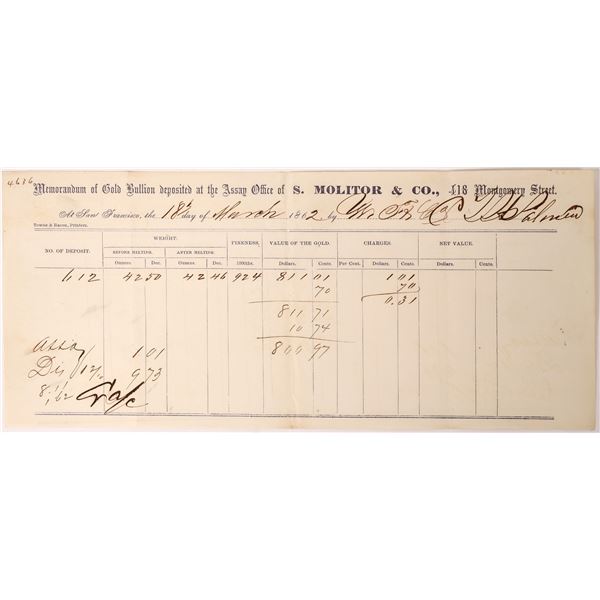 4636
Memorandum of Gold Bullion deposited at the Assay Office of S. MOLITOR & CO., 418 Montgomery Street.
At San Francisco, the 18th day of March 1862 by W. F. & Co
Towne & Bacon, Printers.
NO. OF DEPOSIT. WEIGHT. FINENESS. VALUE OF THE GOLD. CHARGES. NET VALUE.
BEFORE MELTING. AFTER MELTING.
Ounces. Dec. Ounces. Dec. 1000ths. Dollars. Cents. Per Cent. Dollars. Cents. Dollars. Cents.
612 42 50 42 46 924 811 01 1 01
70 70
0.31
811 71
10 74
800 97
Assay 1 01
Dis 9 73